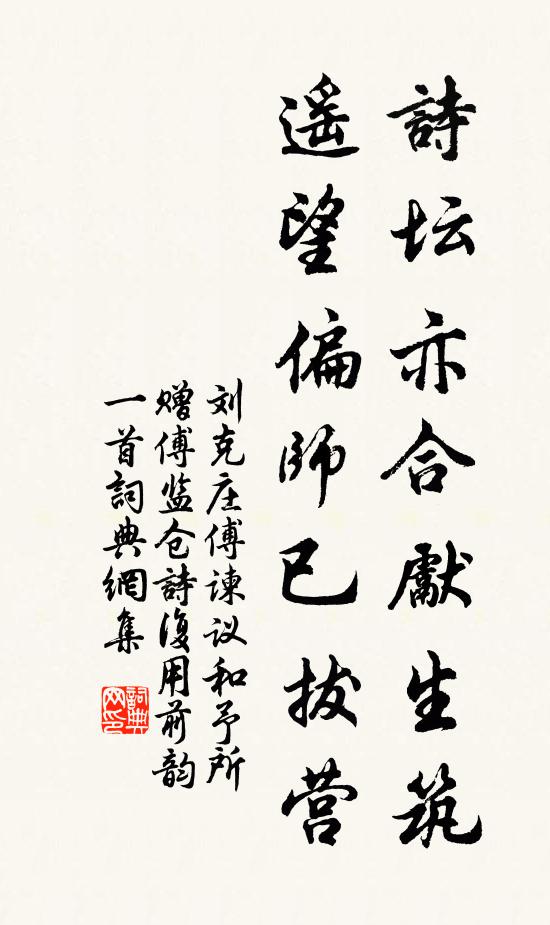 詩坛亦合獻生筑
遥望偏師已拔营
刘克庄傅諫议和予所
赠傅监仓詩復用前韵
一首詞典網集
詞典
网印